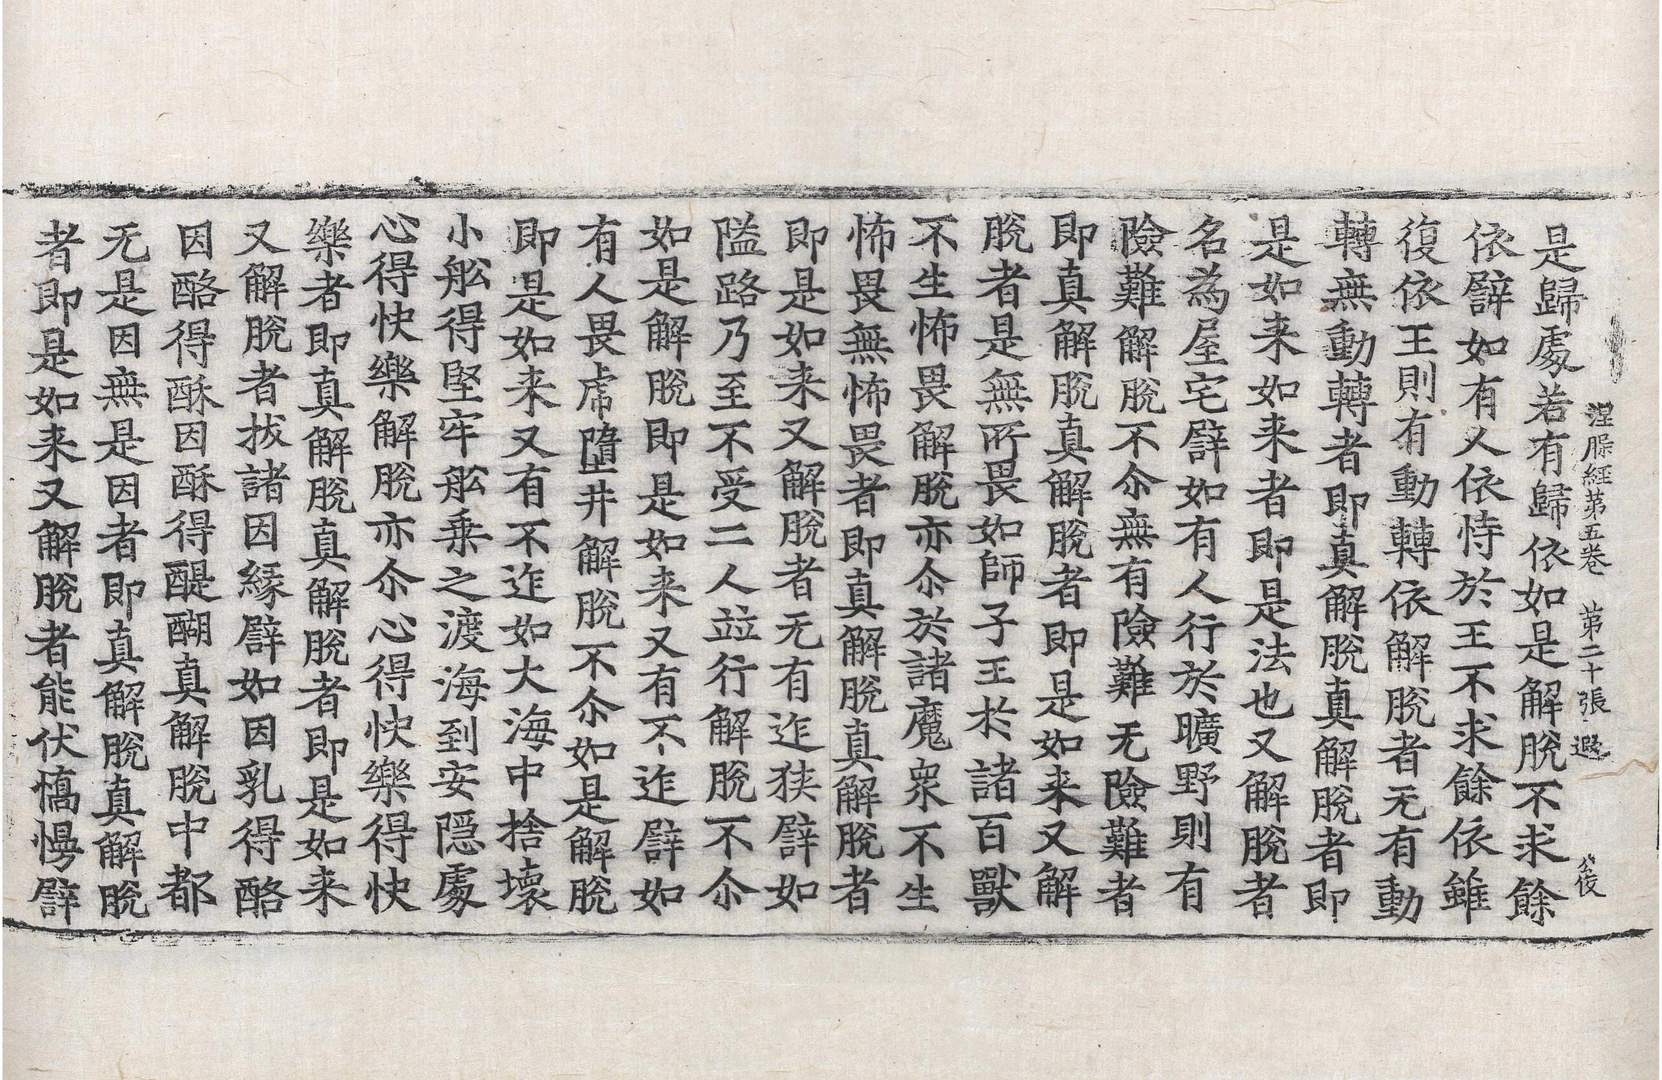 涅槃經第五卷　第二十張　遐　公俊
是歸處若有歸依如是解脫不求餘
依譬如有人依恃於王不求餘依雖
復依王則有動轉依解脫者无有動
轉無動轉者即真解脫真解脫者即
是如来如来者即是法也又解脫者
名為屋宅譬如有人行於曠野則有
險難解脫不尒無有險難无險難者
即真解脫真解脫者即是如来又解
脫者是無所畏如師子王於諸百獸
不生怖畏解脫亦尒於諸魔衆不生
怖畏無怖畏者即真解脫真解脫者
即是如来又解脫者无有迮狭譬如
隘路乃至不受二人並行解脫不尒
如是解脫即是如来又有不迮譬如
有人畏虎墮井解脫不尒如是解脫
即是如来又有不迮如大海中捨壞
小舩得堅牢舩乗之渡海到安隱處
心得快樂解脫亦尒心得快樂得快
樂者即真解脫真解脫者即是如来
又解脫者拔諸因縁譬如因乳得酪
因酪得酥因酥得醍醐真解脫中都
无是因無是因者即真解脫真解脫
者即是如来又解脫者能伏憍慢譬